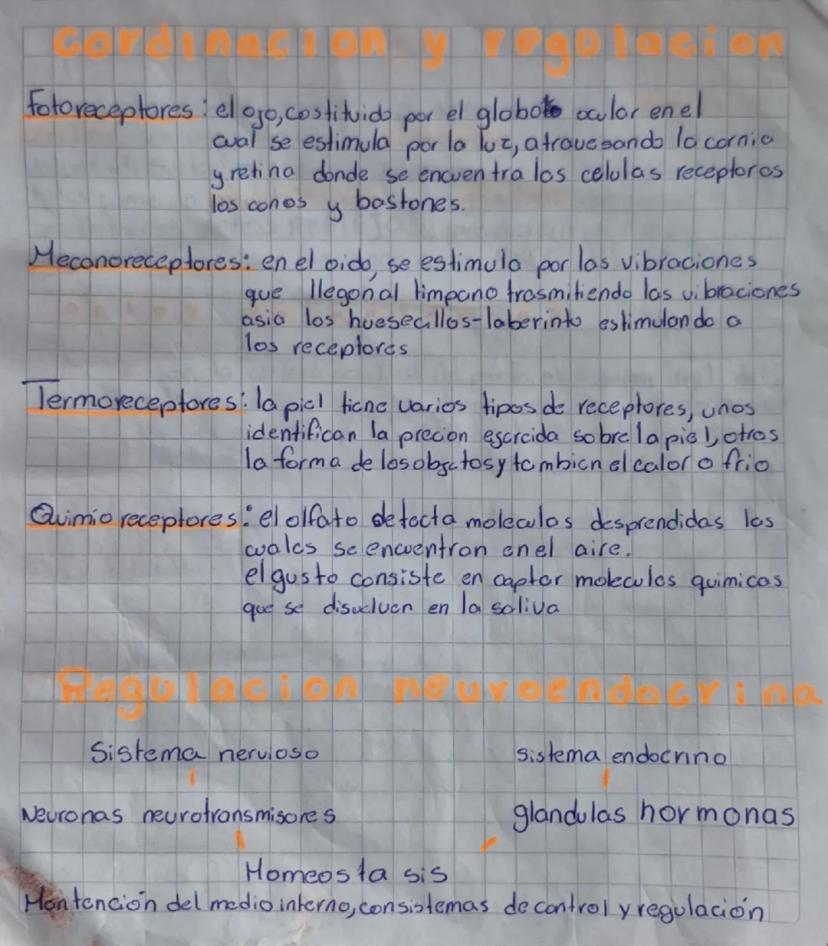 Cordinacion y regulacion
Fotoreceptores: el ojo, costituido por el globo ocular en el
cual se estimula por la luz, atravesando la cornia
y retina donde se encuentra las celulas receptoras
los conos y bastones.
Mecanoreceptores: en el oido, se estimula por las vibraciones
que llegan al timpano trasmitiendo las vibraciones
asia los huesecillos-laberinto estimulando a
los receptores
Termoreceptores: la piel tiene varios tipos de receptores, unos
identifican la precion egarcida sobre la piel, otros
la forma de los objetos y tambien el calor o frio
Quimio receptores: el olfato detecta moleculas desprendidas las
cuales se encuentran en el aire.
el gusto consiste en captar moleculas quimicas
que se disuelven en la saliva
Regulacion neuroendocrina
Sistema nervioso sistema endocrino
Neuronas neurotransmisores glandulas hormonas
Homeostasis
Mantención del medio interno, con sistemas de control y regulación